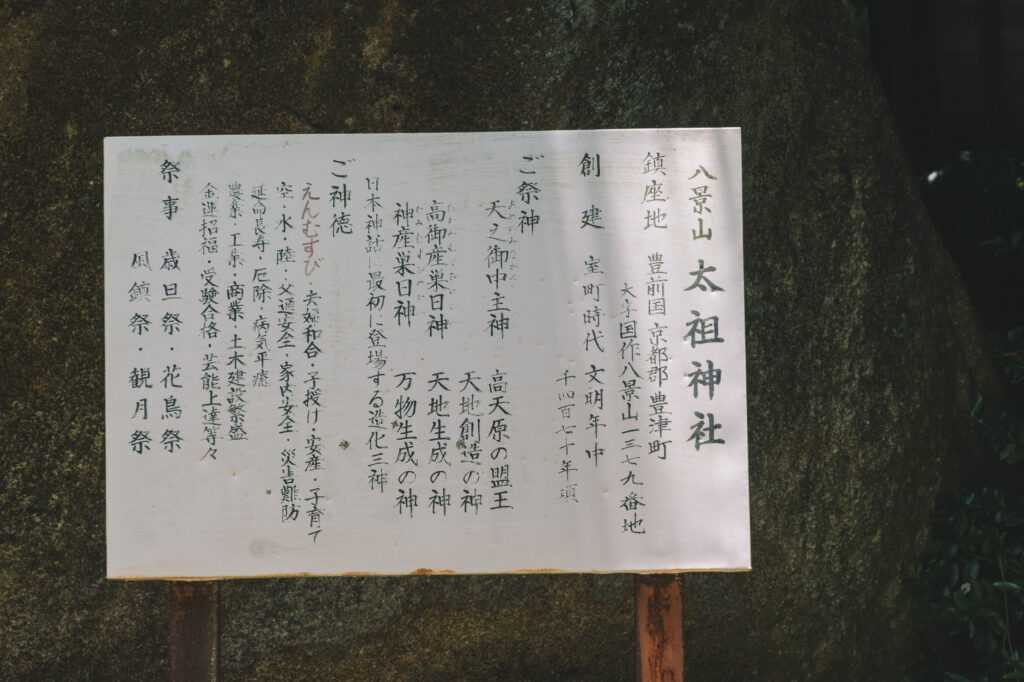 八景山 太祖神社
鎮座地 豊前国 京都郡 豊津町
大字国作八景山一三七九番地
創建 室町時代 文明年中
千四百七十年頃
ご祭神
天之御中主神 高天原の盟王
天地創造の神
高御産巣日神 天地生成の神
神産巣日神 万物生成の神
日本神話に最初に登場する造化三神
ご神徳
えんむすび・夫婦和合・子授け・安産・子育て
空・水・陸・交通安全・家内安全・災害難防
延命長寿・厄除・病気平癒
農業・工業・商業・土木建設繁盛
金運招福・受験合格・芸能上達等々
祭事 歳旦祭・花鳥祭
風鎮祭・観月祭